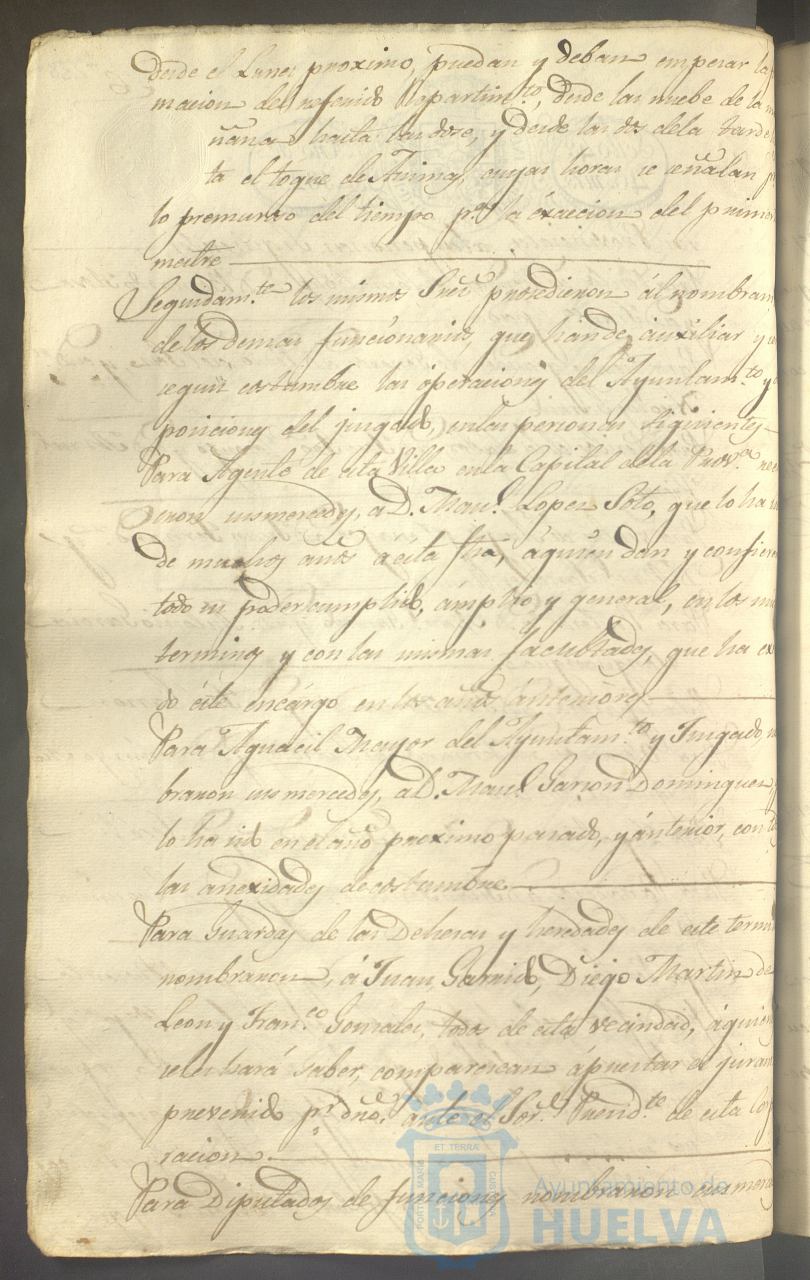 desde el Lunes proximo, puedan y deban empesar la
macion del referido Repartim.to, desde las nuebe de la ma
ñana hasta las dose, y desde las dos dela tarde
ta el toque de Animas, cuyas horas se señalan p
lo premuroso del tiempo p.a la éxaccion del primer
mestre
Seguidam.te los mismos Sres prosedieron ál nombram
delos demas funcionarios, que hande auxiliar y
segun costumbre las óperaciones del Ayuntam.to y
posiciones del jusgado, enlas personas siguientes
Para Agente de esta Villa enla Capital dela Prov.a
eron susmercedes, a D. Man.l Lopez Soto, que lo ha
de muchos anos a esta fha, áquien dan y confieren
todo su poder cumplido, ámplio y general, en los
terminos y con las mismas facultades, que ha
do éste encárgo en los años anteriores
Para Aguacil Mayor del Ayuntam.to y Jusgado,
braron susmercedes, a D. Man.l Garson Dominguez
lo ha sido en el año proximo pasado, y ánterior, con
las anexidades decostumbre
Para Guardas de las Dehesas y heredades de este termi
nombraron, á Juan Garrido, Diego Martin de
Leon y Fran.co Gonzales, todos de esta vecindad, áquien
seles hará saber, comparescan áprestar el juram
prevenido p.r dro, ante el Sor. Presid.te de esta Cor
racion
Para Diputados de funciones nombraron susmerc
Ayuntamiento de
HUELVA
PORTUS MARIS
ET TERRÆ
CUSTODIA